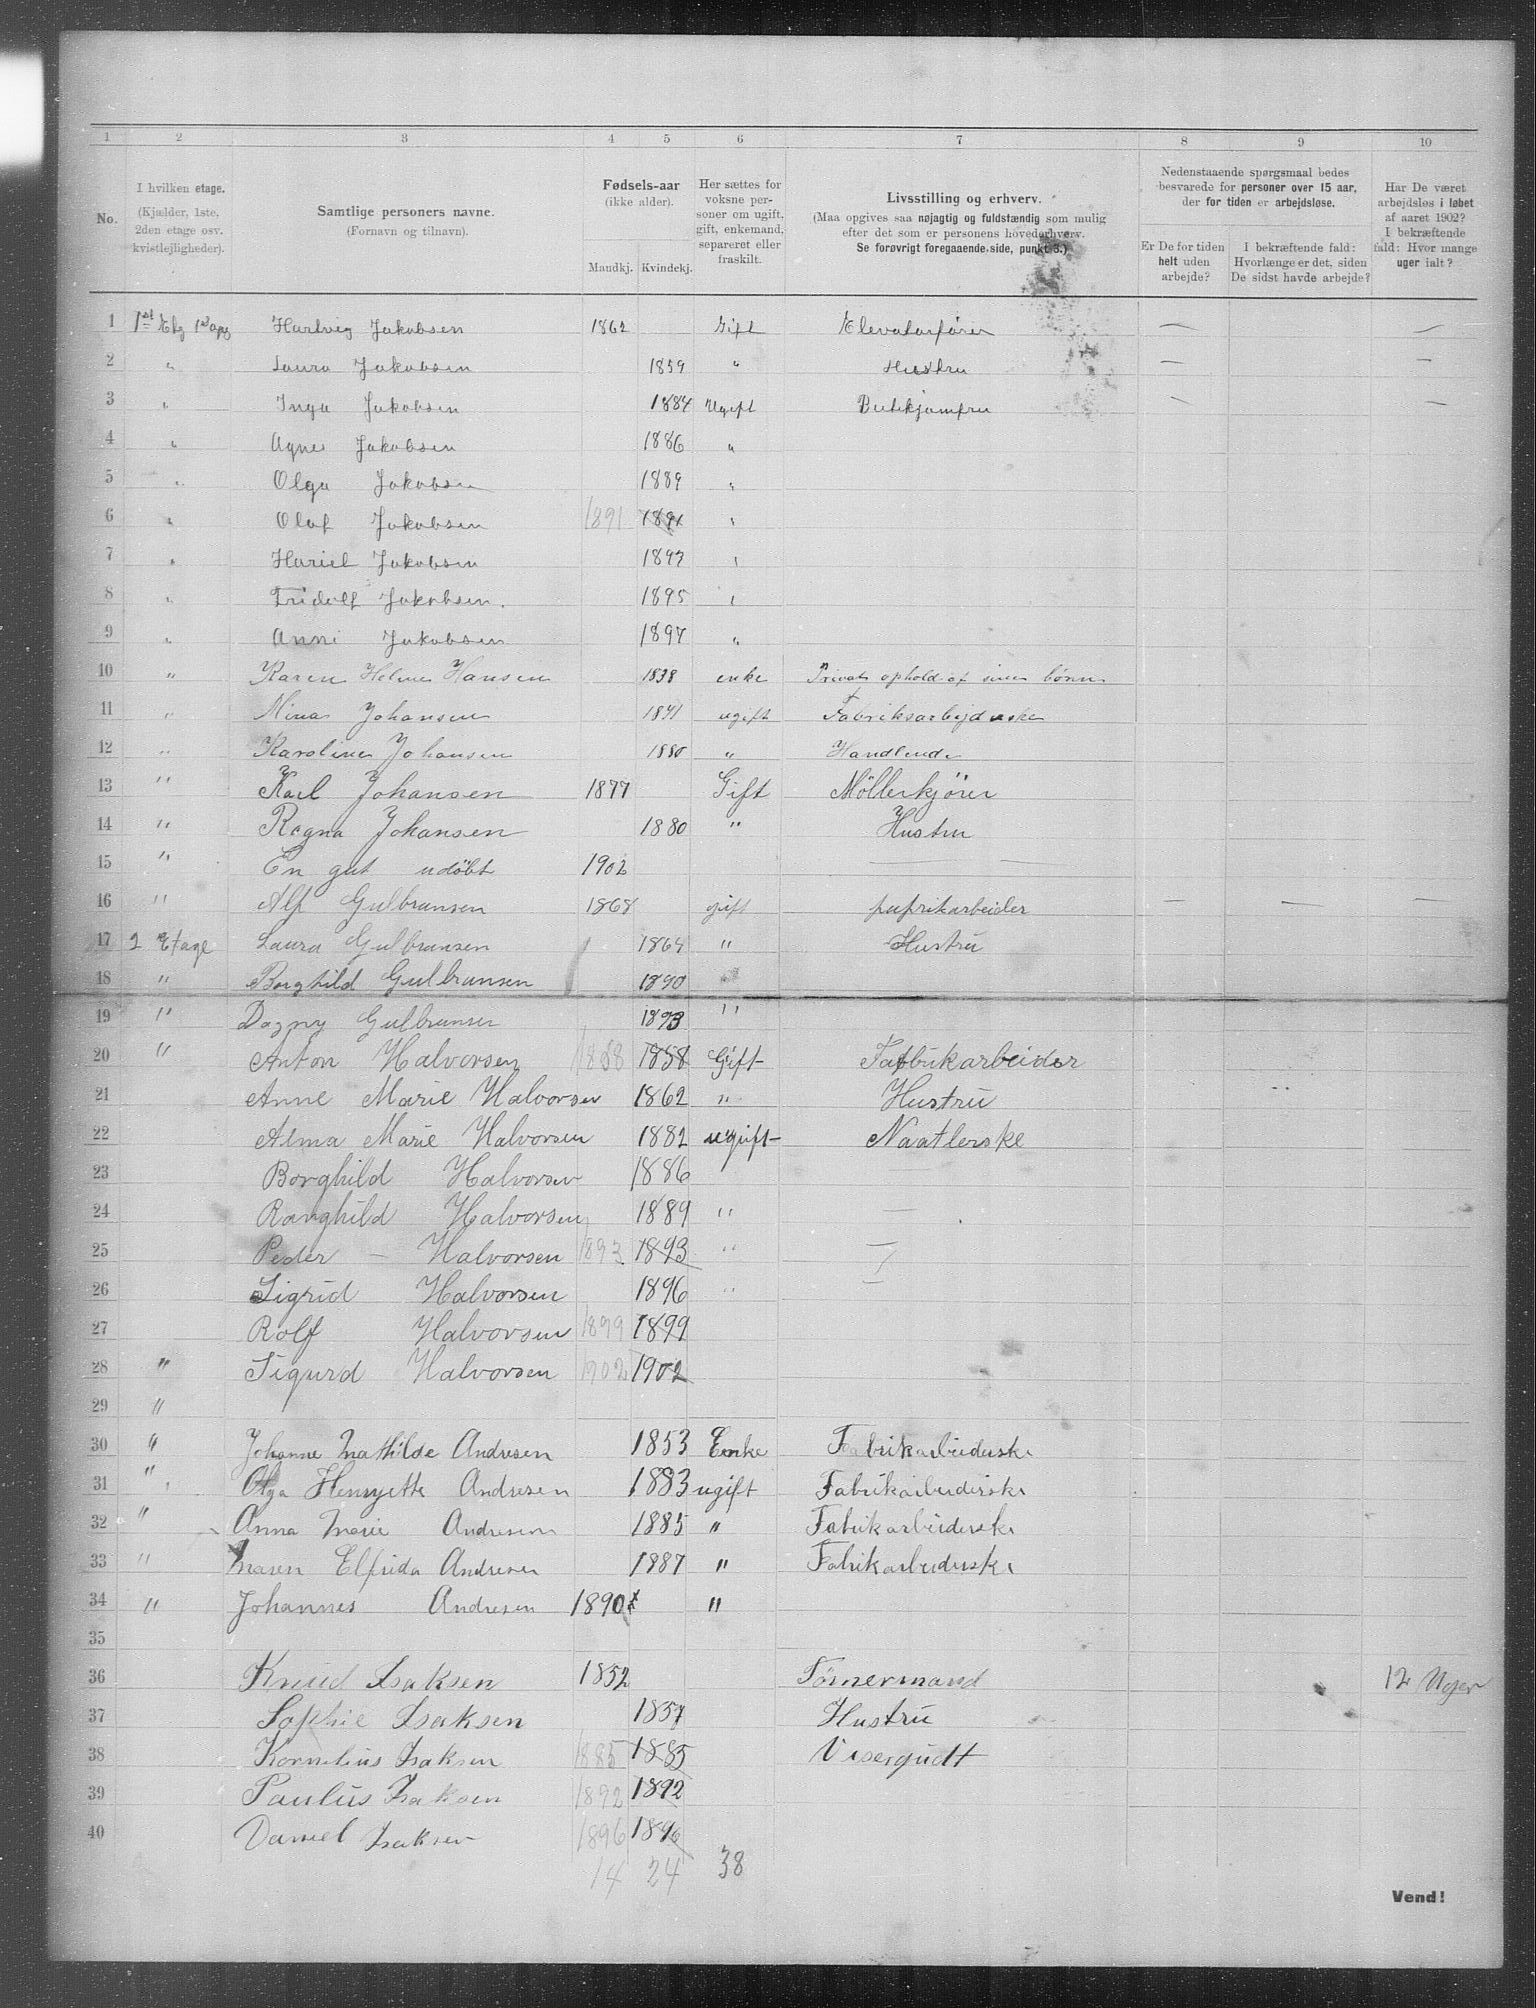 1 2 3 4 5 6 7 8 9 10
No.
I hvilken etage.
(Kjælder, 1ste,
2den etage osv.
kvistlejligheder).
Samtlige personers navne.
(Fornavn og tilnavn).
Fødsels-aar
(ikke alder).
Mandkj. Kvindekj.
Her sættes for
voksne per-
soner om ugift,
gift, enkemand,
separeret eller
fraskilt.
Livsstilling og erhverv.
(Maa opgives saa nøjagtig og fuldstændig som mulig
efter det som er personens hovederhverv.
Se forøvrigt foregaaende side, punkt 3.)
Nedenstaaende spørgsmaal bedes
besvarede for personer over 15 aar,
der for tiden er arbejdsløse.
Er De for tiden
helt uden
arbejde?
I bekræftende fald:
Hvorlænge er det, siden
De sidst havde arbejde?
Har De været
arbejdsløs i løbet
af aaret 1902?
I bekræftende
fald: Hvor mange
uger ialt?
1 1st Etg Hartvig Jakobsen 1862 Gift Elevatorfører — —
2 " Laura Jakobsen 1859 " Hustru — —
3 " Inga Jakobsen 1884 Ugift Butikjomfru — —
4 " Agnes Jakobsen 1886 "
5 " Olga Jakobsen 1889 "
6 " Olaf Jakobsen 1891 1891 "
7 " Jakobsen 1893 "
8 " Fridolf Jakobsen. 1895 "
9 " Anni Jakobsen 1897 "
10 " Karen Heline Hansen 1838 enke Privat ophold af sine børn
11 " Mina Johansen ugift Fabriksarbejderske
12 " Karoline Johansen 1880 " Handlende
13 " Karl Johansen 1877 Gift Møllerkjører
14 " Ragna Johansen 1880 " Hustru
15 " En gut udöbt 1902 — —
16 " Alf Gulbransen 1868 gift papirikarbeider — — —
17 2 Etage Laura Gulbransen 1864 " Hustru
18 " Borghild Gulbransen 1890 "
19 " Dagny Gulbransen 1893 "
20 " Anton Halvorsen 1858 1858 Gift Fabbrikarbeider
21 Anne Marie Halvorsen 1862 " Hustru
22 Alma Marie Halvorsen 1882 ugift Naatlerske
23 Borghild Halvorsen 1886
24 Ranghild Halvorsen 1889 " —
25 Peder — Halvorsen 1893 1893 " —
26 Sigrid Halvorsen 1896 " —
27 Rolf Halvorsen 1899 1899
28 " Sigurd Halvorsen 1902 1902
29 "
30 " Johanne Mathilde Andresen 1853 Enke Fabrikarbeiderske
31 " Olga Henryette Andresen 1883 ugift Fabrikarbeiderske
32 " Anna Marie Andresen 1885 " Fabrikarbeiderske
33 " Maren Elfrida Andresen 1887 " Fabrikarbeiderske
34 " Johannes Andresen 1890 "
35
36 Knud Isaksen 1852 Tömermand 12 Uger
37 Sophie Isaksen 1857 Hustru
38 Kornelius Isaksen 1885 1885 Visergudt
39 Paulus Isaksen 1892 1892
40 Daniel Isaksen 1896 1896
14 24 38
Vend!